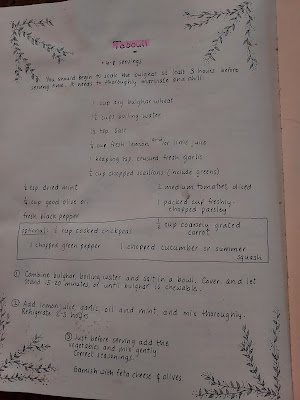 Tabouli
4-6 servings
You should begin to soak the bulghar at least 3 hours before
serving time. It needs to thoroughly marinate and chill.
1 cup dry bulghar wheat
1½ cups boiling water
1½ tsp. salt
¼ cup fresh lemon and/or lime juice
1 heaping tsp. crushed fresh garlic
½ cup chopped scallions (include greens)
½ tsp. dried mint
2 medium tomatoes, diced
¼ cup good olive oil
1 packed cup freshly-
chopped parsley
fresh black pepper
½ cup coarsely grated
carrot
(optional: ½ cup cooked chickpeas
1 chopped green pepper
1 chopped cucumber or summer
squash
① Combine bulghar, boiling water, and salt in a bowl. Cover and let
stand 15-20 minutes or until bulghar is chewable.
② Add lemon juice, garlic, oil and mint, and mix thoroughly.
Refrigerate 2-3 hours
③ Just before serving add the
vegetables and mix gently.
Correct seasonings.
Garnish with feta cheese & olives.